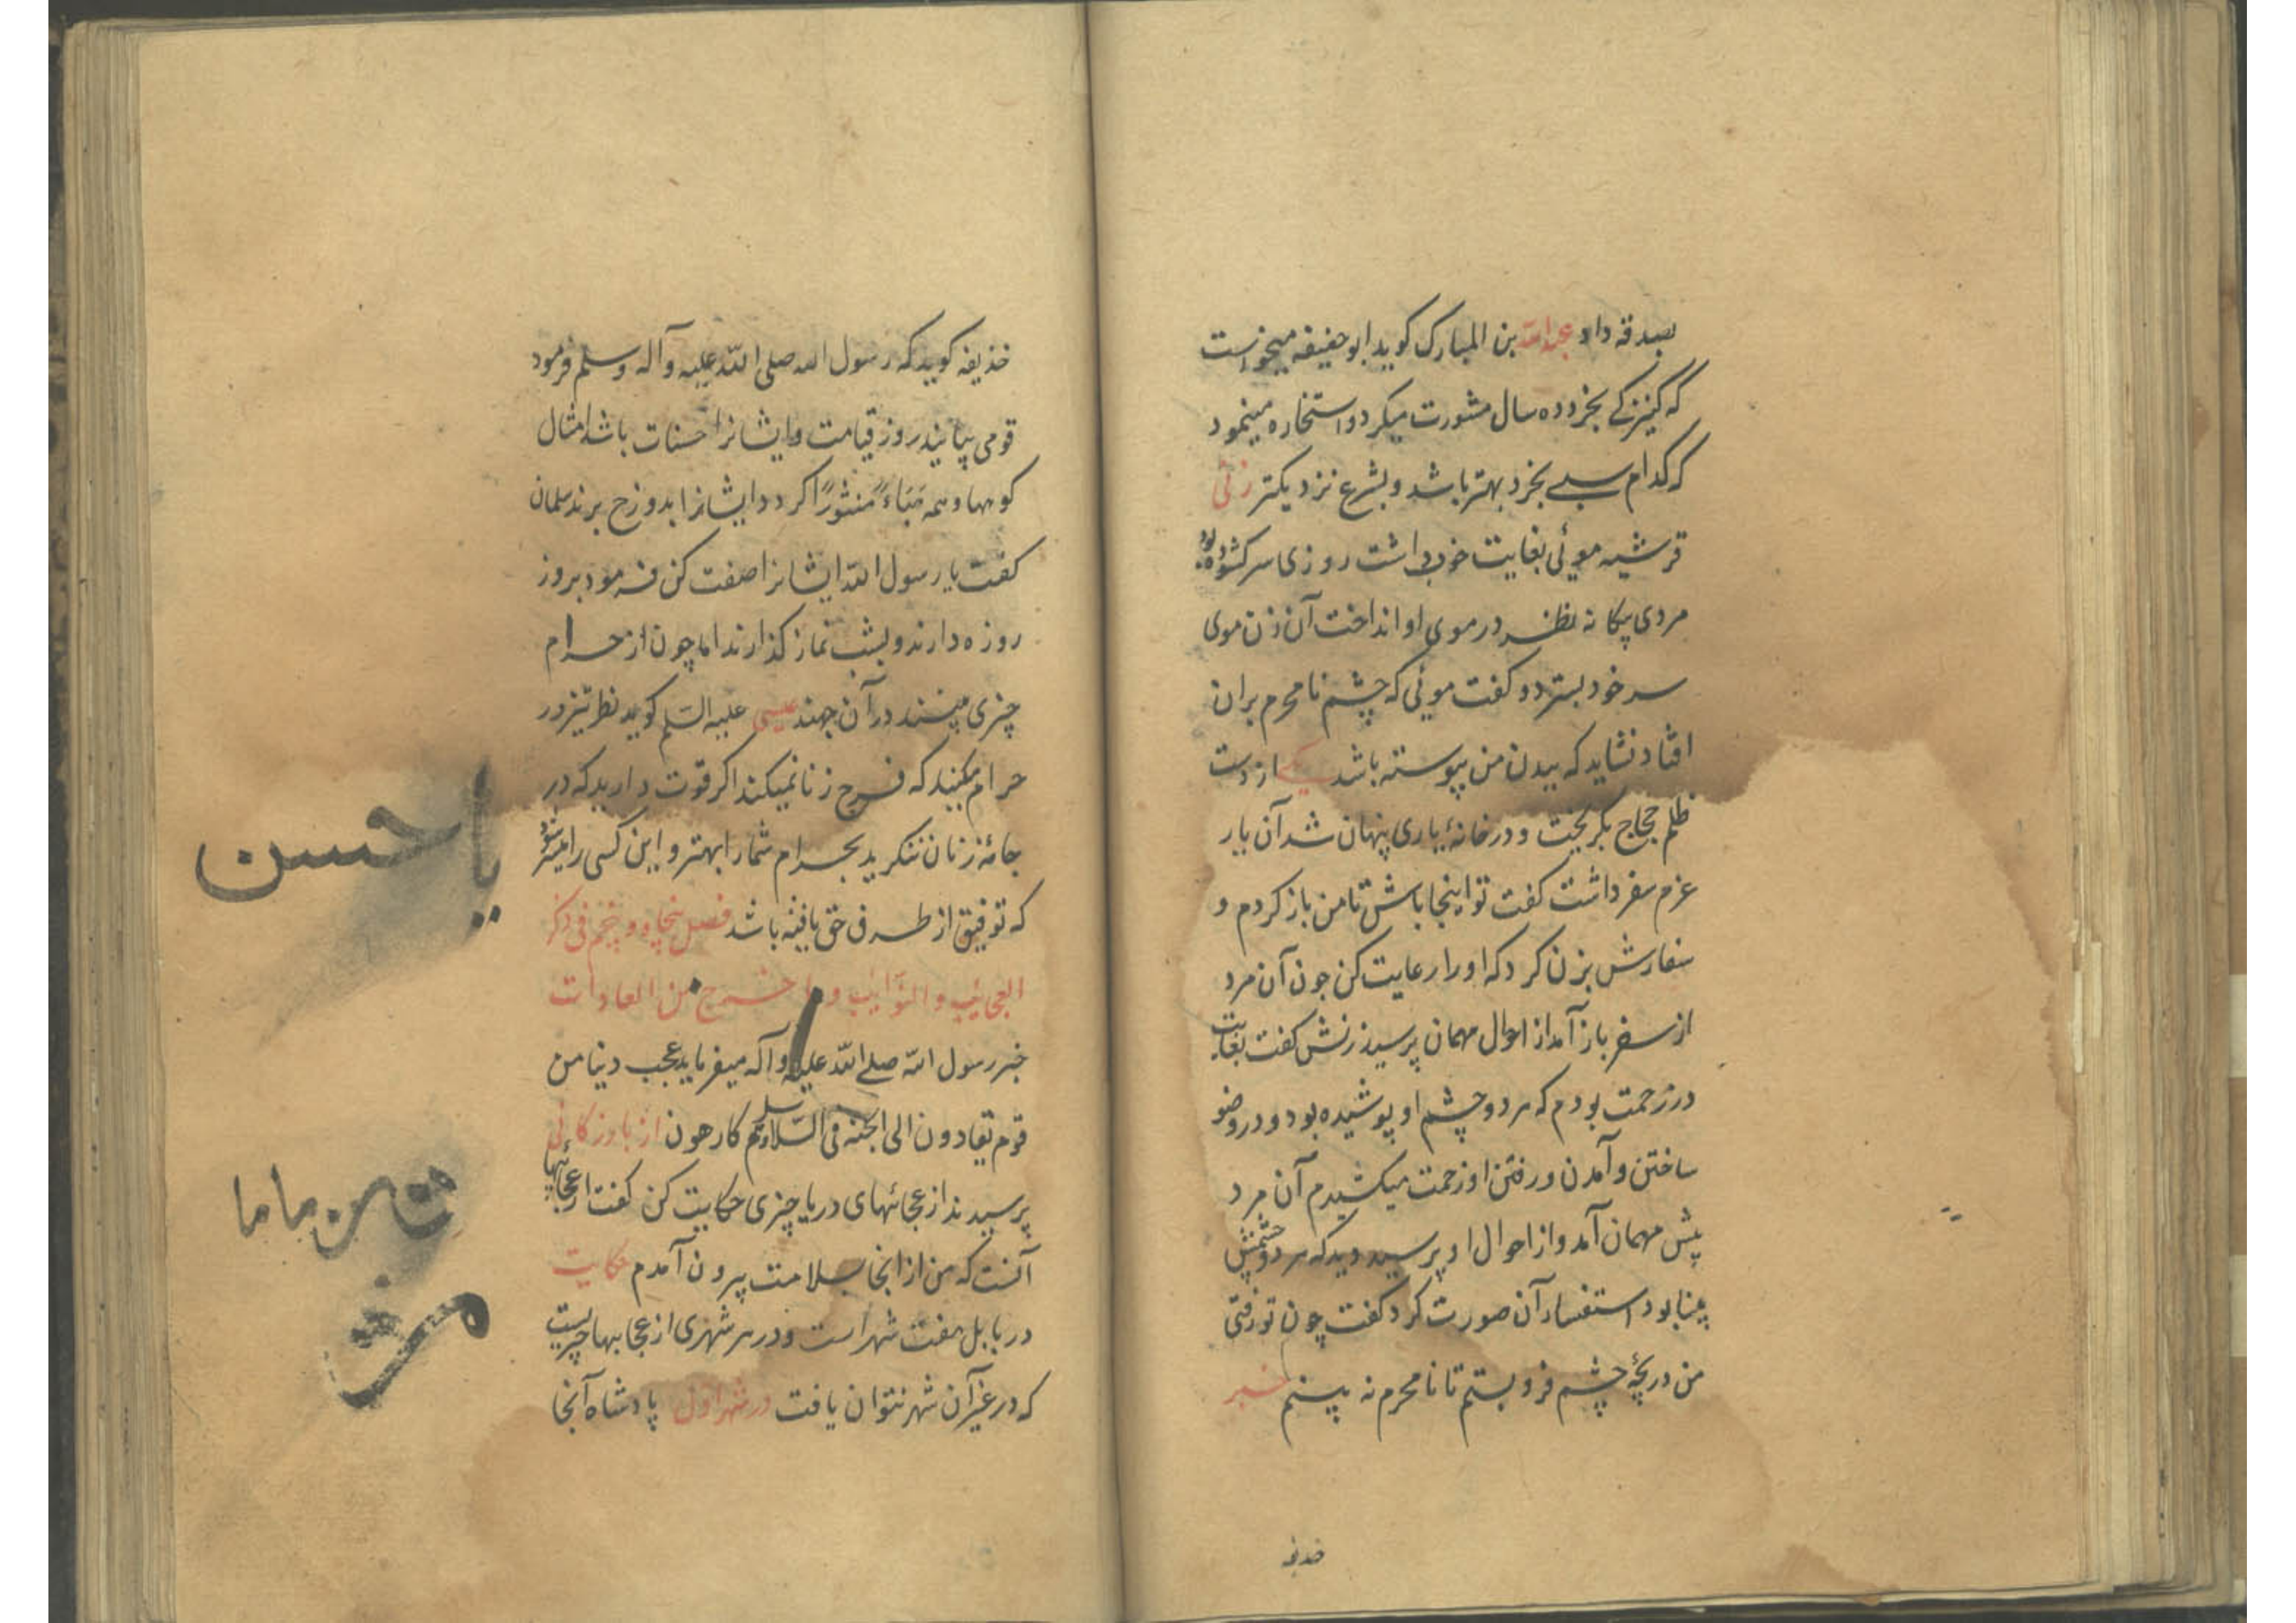 بصدقه داد عبدالله بن المبارک کوید ابو حنیفه میخواست
که کنیزکی بخرد ده سال مشورت میکرد و استخاره مینمود
که کدام سبی بخرد بهتر باشد و بشرع نزدیکتر زنی
قرشیه موئی بغایت خوب داشت روزی سر کشوده بود
مردی بیکانه نظر در موی او انداخت آن زن موی
سر خود بسترد و کفت موئی که چشم نامحرم بران
افتاد نشاید که ببدن من پیوسته باشد یکی از دست
ظلم حجاج بکریخت و در خانهٔ یاری پنهان شد آن یار
عزم سفر داشت کفت تو اینجا باش تا من باز کردم و
سفارش بزن کرد که او را رعایت کن چون آن مرد
از سفر باز آمد از احوال مهمان پرسید زنش کفت بغایت
در زحمت بودم که هر دو چشم او پوشیده بود و در وضو
ساختن و آمدن و رفتن او زحمت میکشیدم آن مرد
پیش مهمان آمد و از احوال او پرسید دید که هر دو چشمش
بینا بود استفسار آن صورت کرد کفت چون تو رفتی
من دریچهٔ چشم فرو بستم تا نامحرم نه بینم خبر
حذیفه
حذیفه کوید که رسول الله صلی الله علیه و آله و سلم فرمود
قومی بیایند روز قیامت و ایشانرا حسنات باشد امثال
کوهها و همه هَبَاءً مَنثُورًا کردد و ایشانرا بدوزخ برند سلمان
کفت یا رسول الله ایشانرا صفت کن فرمود بروز
روزه دارند و بشب نماز کذارند اما چون از حرام
چیزی بینند در آن جهند عیسی علیه السلم کوید نظر تیز در
حرام مکنید که فرج زنا نمیکند اکر قوت دارید که در
جامهٔ زنان ننکرید بحرام شما را بهتر و این کسی را میسر شود
که توفیق از طرف حق یافته باشد فصل پنجاه و پنجم فی ذکر
العجایب و النوایب و ما خرج من العادات
خبر رسول الله صلی الله علیه و آله میفرماید عجب دینا من
قوم تقادون الی الجنه فی السلاسل و هم کارهون از بازرکانی
پرسیدند از عجائبهای دریا چیزی حکایت کن کفت از عجائبها
آنست که من از انجا بسلامت بیرون آمدم حکایت
در بابل هفت شهر است و در هر شهری از عجایبها چیزیست
که در غیر آن شهر نتوان یافت در شهر اول پادشاه آنجا
یا حسن